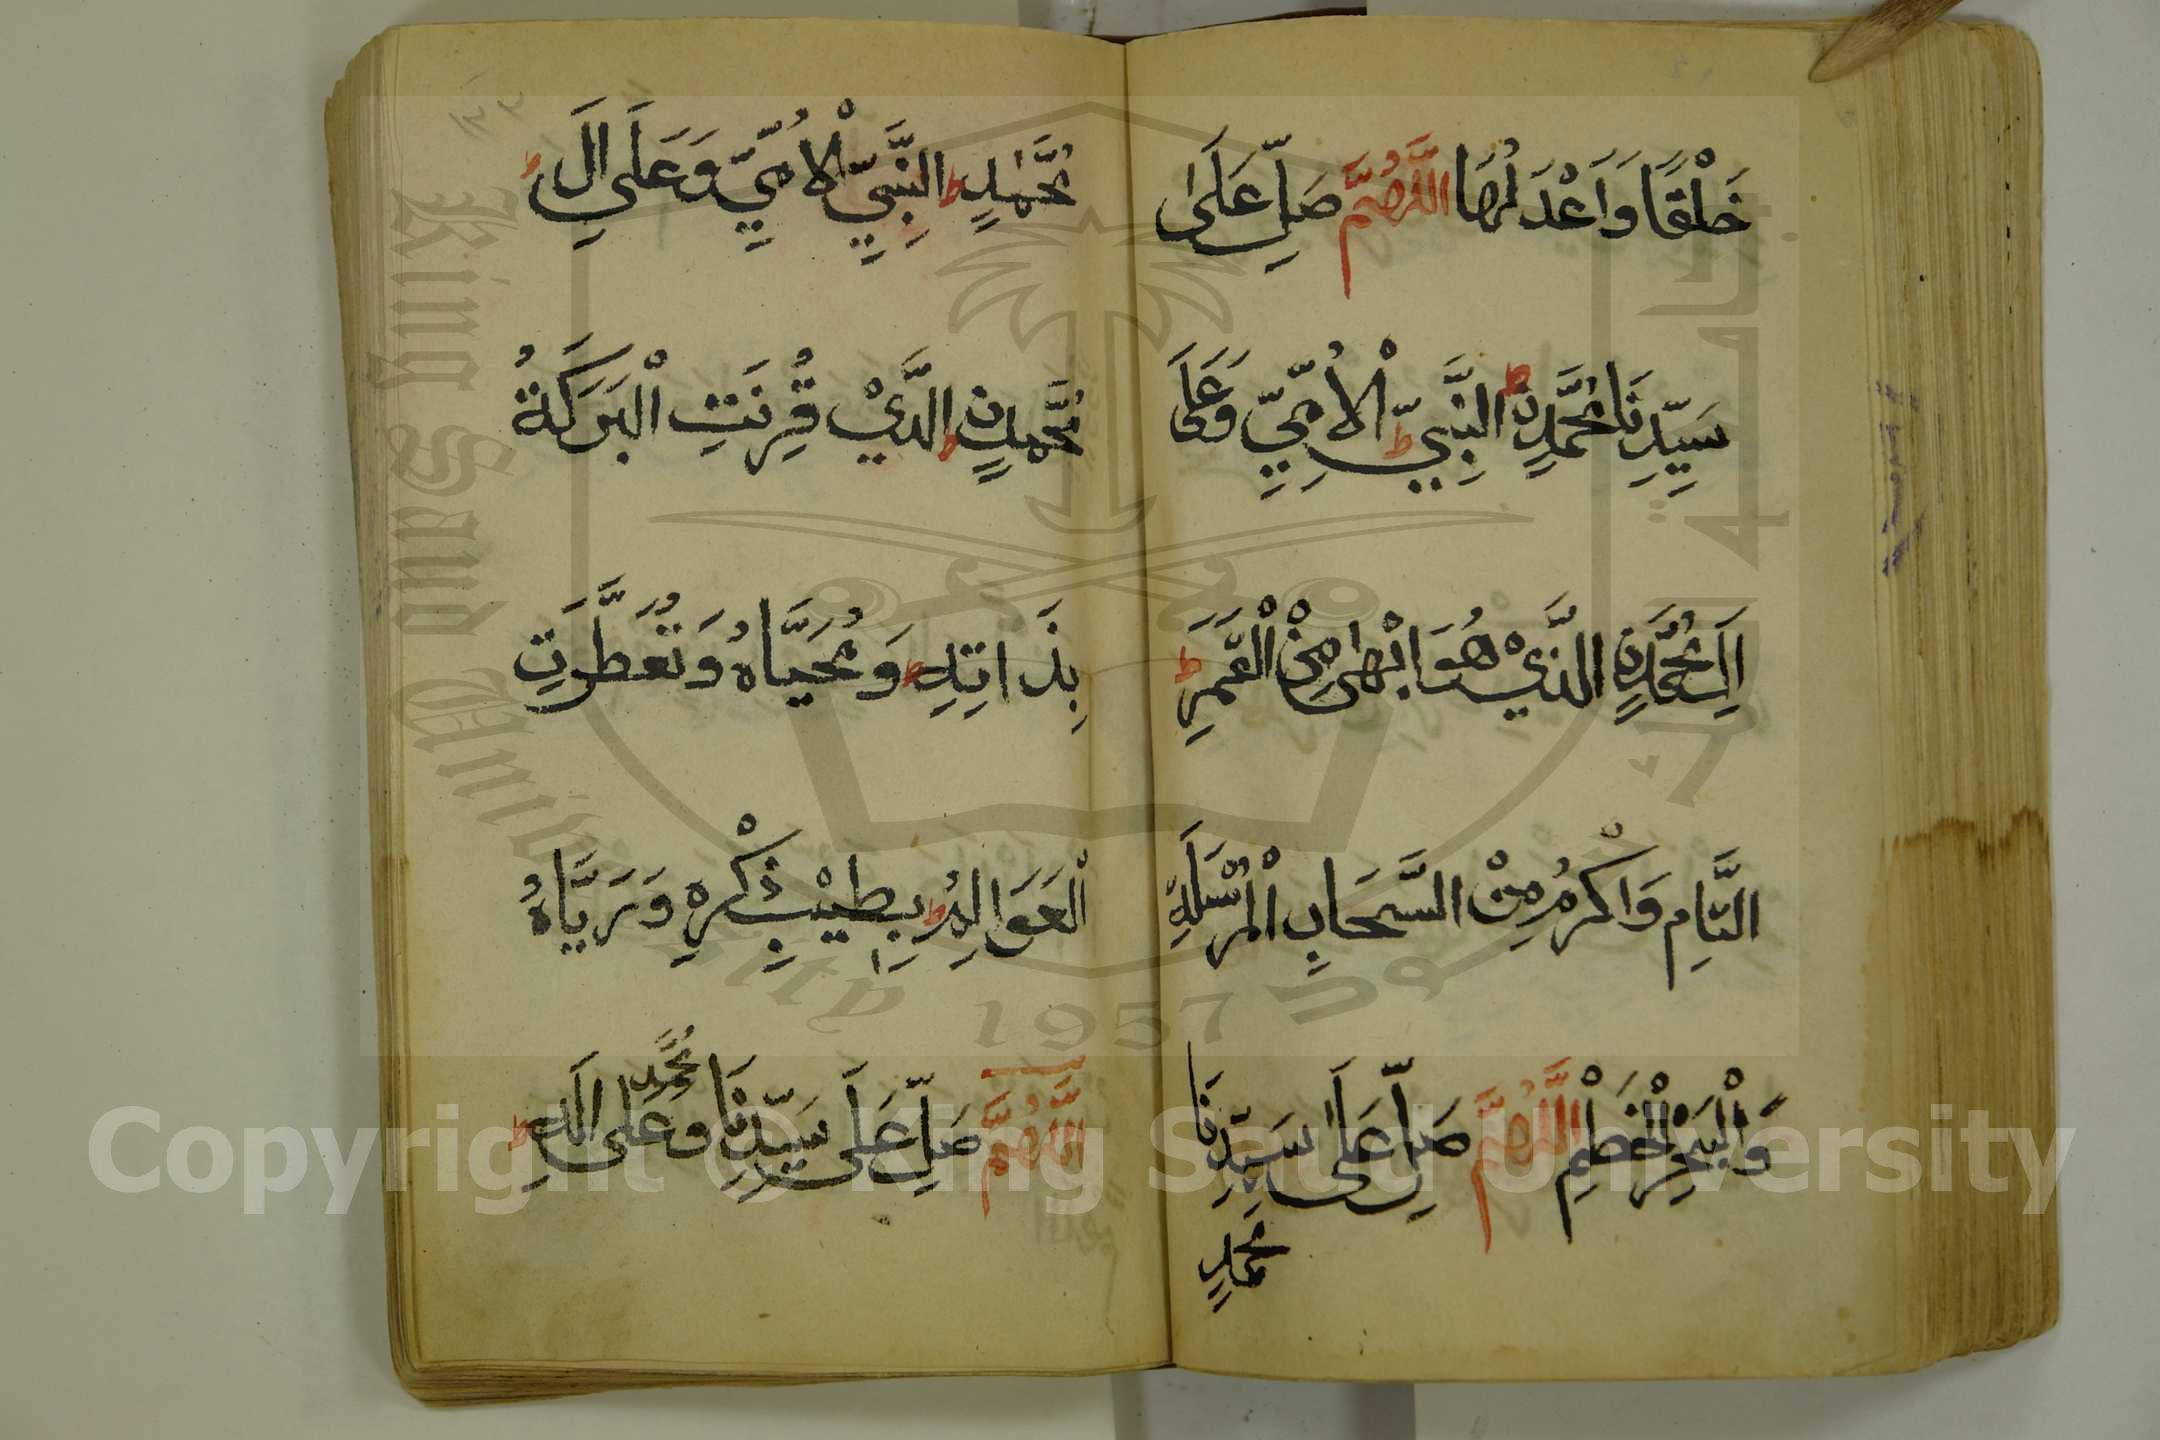 خَلْقًا وَاَعْدَلُهَا اللَّهُمَّ صَلِّ عَلَىٰ
سَيِّدِنَا مُحَمَّدٍ النَّبِيِّ الْاُمِّيِّ وَعَلَى
اٰلِ مُحَمَّدٍ الَّذِيْ هُوَ اَبْهٰى مِنْ الْقَمَرِ
التَّامِ وَاَكْرَمُ مِنْ السَّحَابِ الْمُرْسَلَةِ
وَالْبَحْرِ الْخَطْمِ اللَّهُمَّ صَلِّ عَلَىٰ سَيِّدِنَا
مُحَمَّدٍ
مُحَمَّدٍ النَّبِيِّ الْاُمِّيِّ وَعَلَى اٰلِ
مُحَمَّدٍ الَّذِيْ قُرِنَتِ الْبَرَكَةُ
بِذَاتِهِ وَمُحَيَّاهُ وَتَعَطَّرَتِ
الْعَوَالِمُ بِطِيْبِ ذِكْرِهِ وَرَيَّاهُ
اللَّهُمَّ صَلِّ عَلَى سَيِّدِنَا مُحَمَّدٍ وَعَلَى اٰلِهِ
King Saud University
1957
Copyright © King Saud University